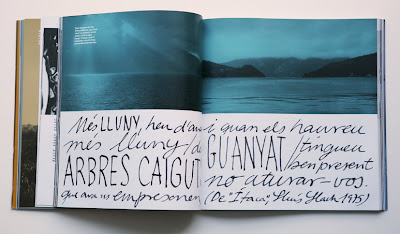 Més LLUNY, heu d'an
més lluny/de
ARBRES CAIGUT
que ara us empresonen
i quan els haureu
GUANYAT/tingueu
ben present
no aturar-vos.
(De "Itaca", Lluís Llach 1975)